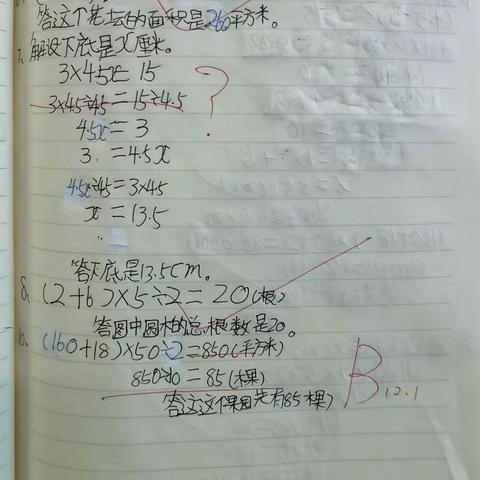 答这个花坛的面积是260平方米。
7、解设下底是x厘米。
3×45x=15
?
3×45÷45=15÷4.5
45x=3
3.=4.5x
4.5x÷45=3×45
x=13.5
答下底是13.5cm。
8、(2+6)×5÷2=20(根)
答图中圆木的总根数是20。
10、(160+18)×50÷2=850(平方米)
850÷10=85(棵)
答这这个果园共有85棵)
B 12.1